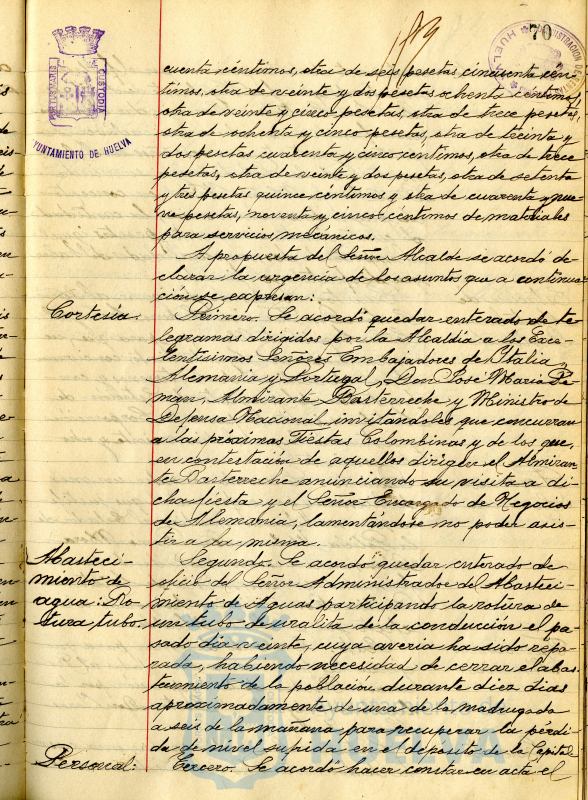 70
PORTUS MARIS
CUSTODIA
AYUNTAMIENTO DE HUELVA
HUELVA
cuenta céntimos, otra de seis pesetas cincuenta cén-
timos, otra de veinte y dos pesetas ochenta céntimos,
otra de veinte y cinco pesetas, otra de trece pesetas,
otra de ochenta y cinco pesetas, otra de treinta y
dos pesetas cuarenta y cinco céntimos, otra de trece
pesetas, otra de veinte y dos pesetas, otra de setenta
y tres pesetas quince céntimos y otra de cuarenta y nue-
ve pesetas, noventa y cinco céntimos de materiales
para servicios mecánicos.
A propuesta del Señor Alcalde se acordó de-
clarar la urgencia de los asuntos que a continua-
ción se expresan:
Cortesía. Primero. Se acordó quedar enterado de te-
legramas dirigidos por la Alcaldía a los Exce-
lentísimos Señores Embajadores de Italia,
Alemania y Portugal, Don José María Pe-
man, Almirante Basterreche y Ministro de
Defensa Nacional, invitándoles que concurran
a las próximas Fiestas Colombinas y de los que,
en contestación de aquellos dirigen el Almiran-
te Basterreche anunciando su visita a di-
cha fiesta y el Señor Encargado de Negocios
de Alemania, lamentándose no poder asis-
tir a la misma.
Abasteci- Segundo. Se acordó quedar enterado de
miento de oficio del Señor Administrador del Abasteci-
agua: Ro- miento de Aguas participando la rotura de
tura, tubo. un tubo de uralita de la conducción el pa-
sado día veinte, cuya avería ha sido repa-
rada, habiendo necesidad de cerrar el abas-
tecimiento de la población durante diez días
aproximadamente de una de la madrugada
a seis de la mañana para recuperar la pérdi-
da de nivel sufrida en el depósito de la Capital.
Personal: Tercero. Se acordó hacer constar en acta el
HUELVA